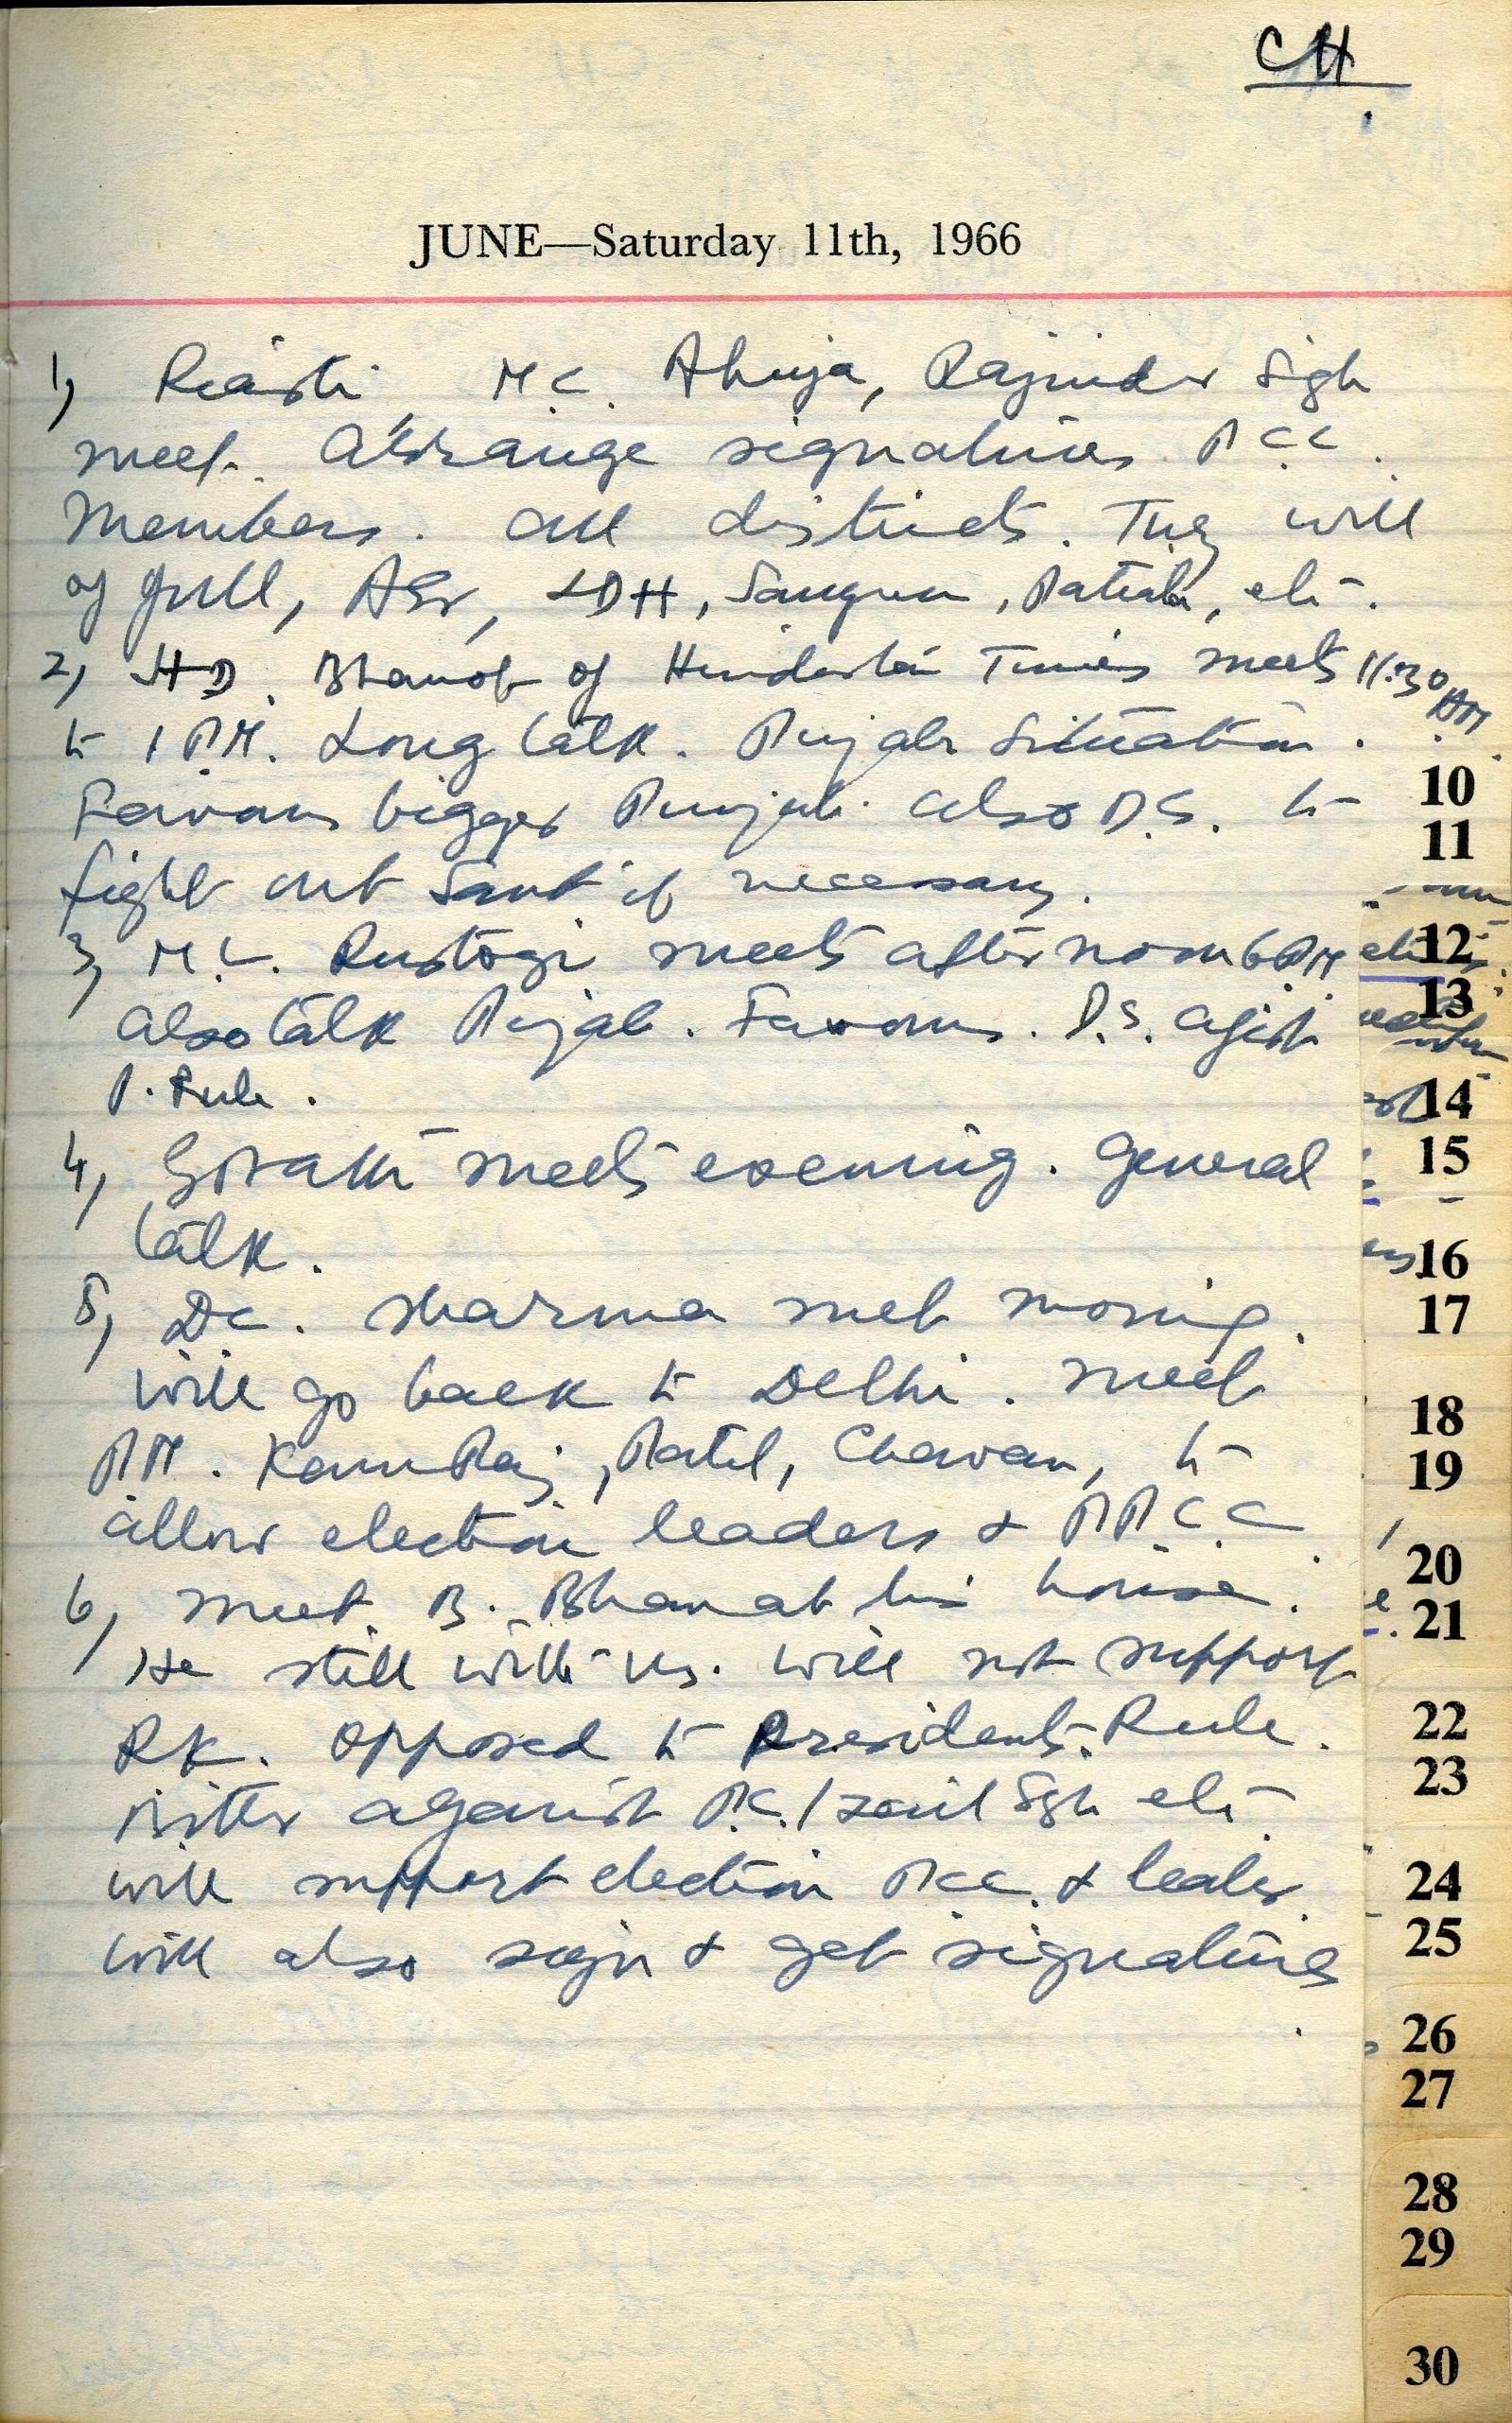 CH
JUNE—Saturday 11th, 1966
1, M.C. Ahuja, Rajinder Sigh
meet. Arrange signatures P.C.C.
Members. All districts. They will
of Jull, ASr, LDH, Sangrur, Patiala, etc.
2, H.D. Bhanot of Hindustan Times meets 11.30 AM
to 1 P.M. Long talk. Punjab Situation.
Favours bigger Punjab. Also D.S. to
fight out Sant if necessary.
3, M.L. Rustogi meets afternoon 6 PM
Also talk Punjab. Favours. D.S. agist
P. Rule.
4, meets evening. General
talk.
5, D.C. Sharma met morning.
Will go back to Delhi. Meet
PM. KamRaj, Patil, Chavan, to
allow election leaders & PPCC.
6, Meet B. Bhan at his house.
He still with us. Will not support
RK. Opposed to Presidents Rule.
Bitter against P.C./Zail Sgh etc.
Will support election PCC. & leader.
Will also sign & get signatures
10
11
12
13
14
15
16
17
18
19
20
21
22
23
24
25
26
27
28
29
30